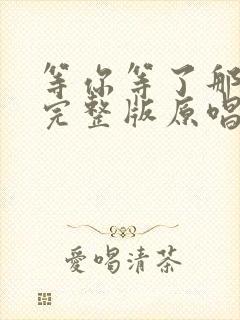 等你等了那
完整版原唱
愛喝清茶